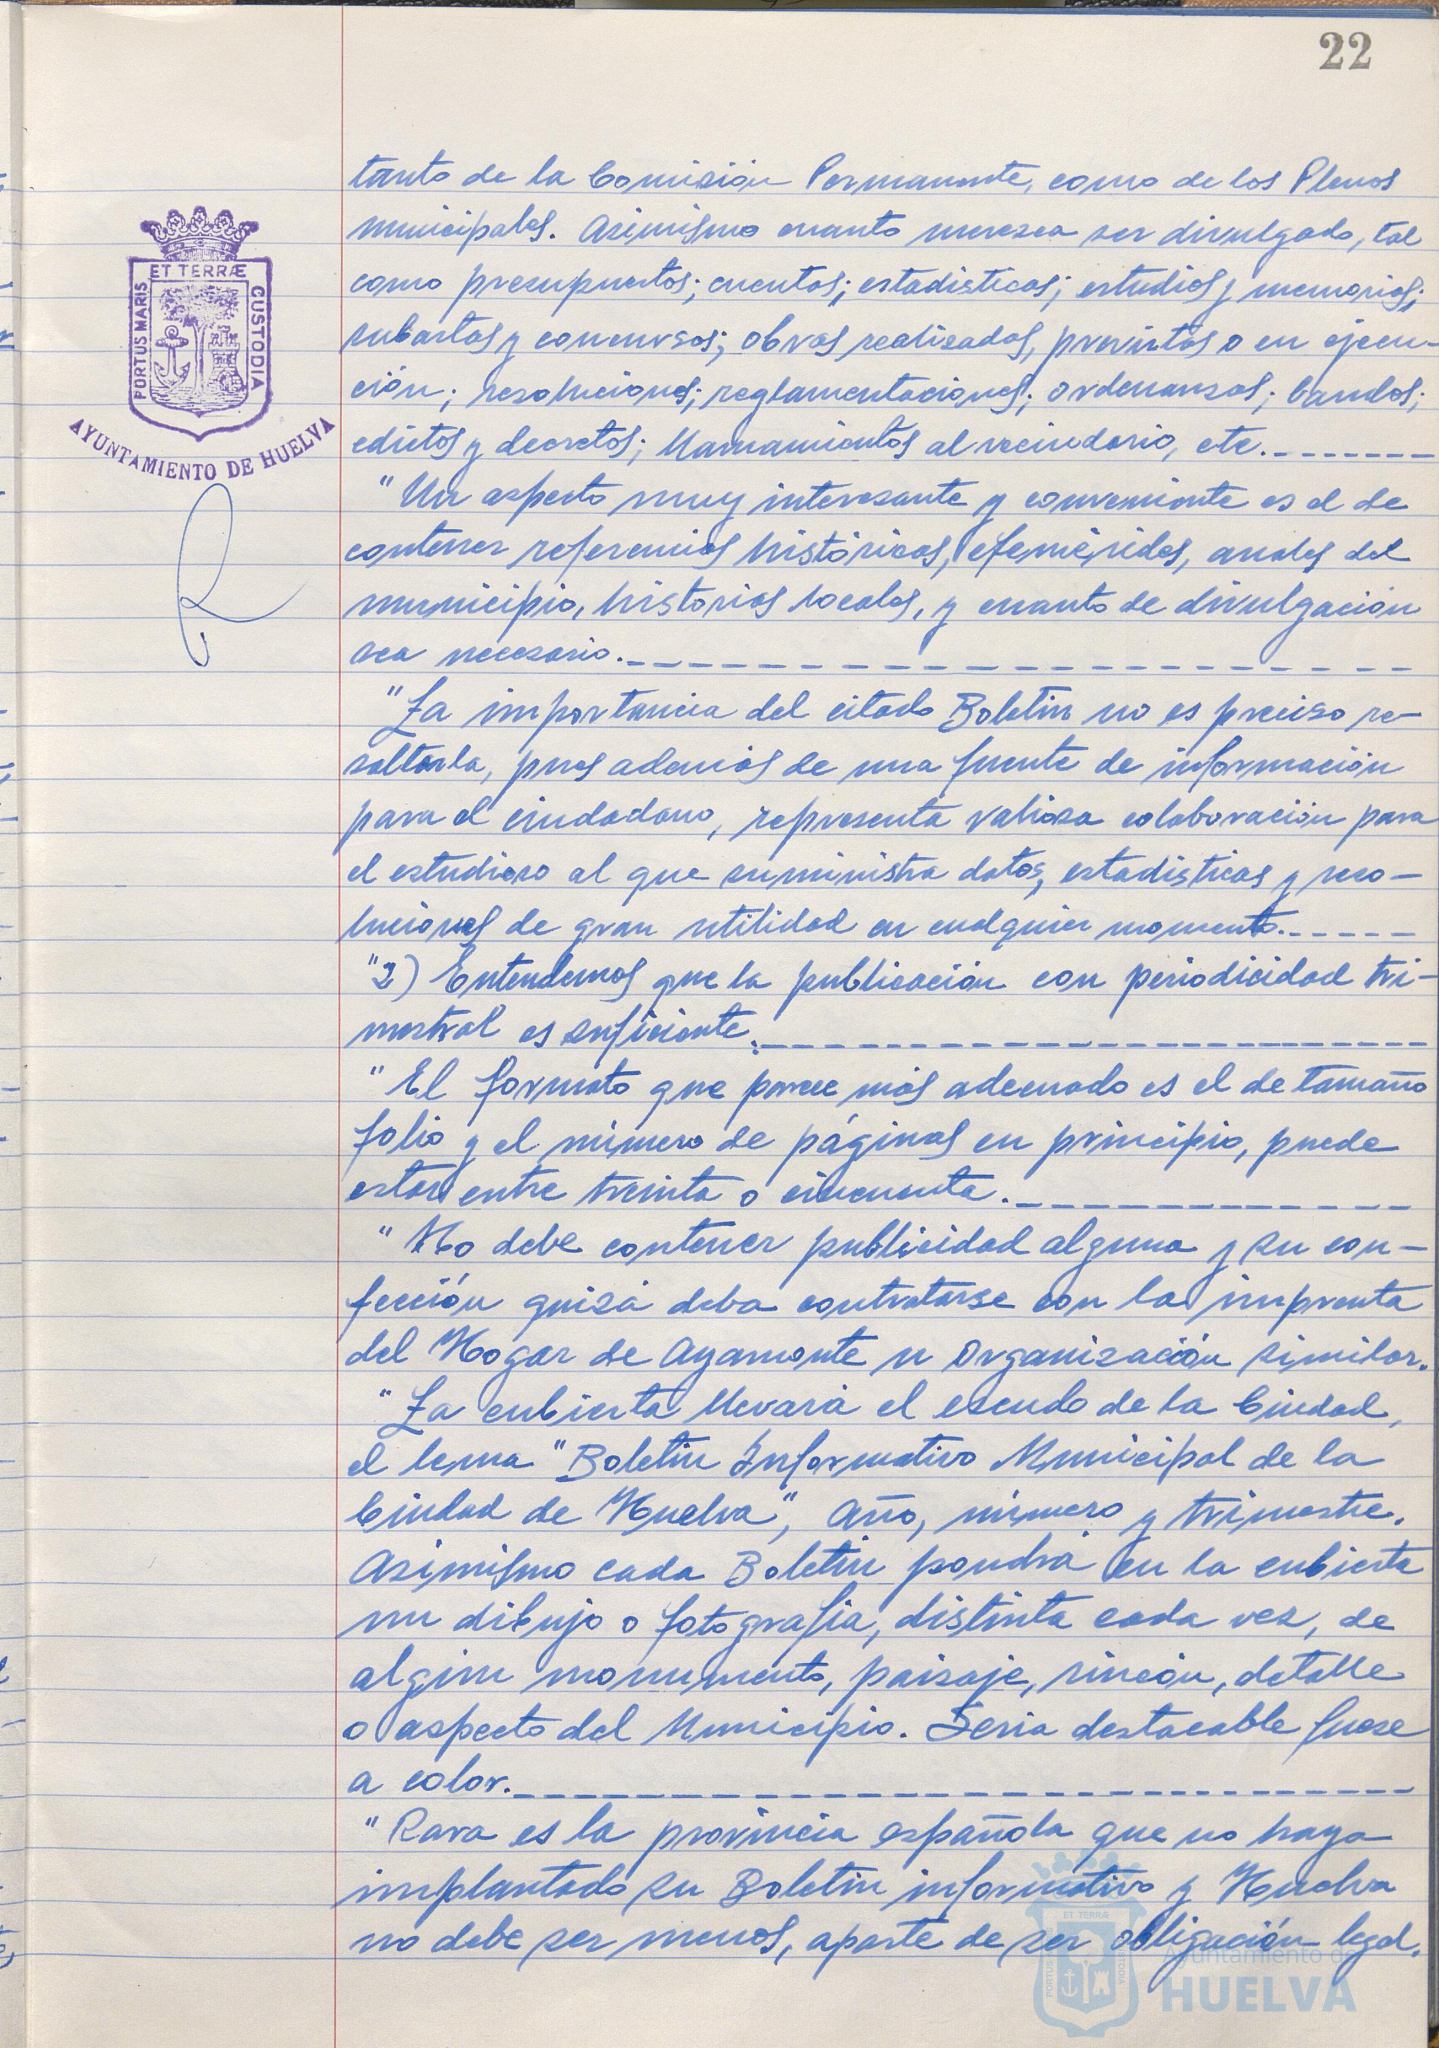 22
tanto de la Comisión Permanente, como de los Plenos
municipales. Asimismo cuanto merezca ser divulgado, tal
como presupuestos; cuentas; estadísticas; estudios y memorias;
subastas y concursos; obras realizadas, previstas o en ejecu-
ción; resoluciones; reglamentaciones; ordenanzas; bandos;
edictos y decretos; llamamientos al vecindario, etc.
"Un aspecto muy interesante y conveniente es el de
contener referencias históricas, efemérides, anales del
municipio, historias locales, y cuanto de divulgación
sea necesario.
"La importancia del citado Boletin no es preciso re-
saltarla, pues además de una fuente de información
para el ciudadano, representa valiosa colaboración para
el estudioso al que suministra datos, estadísticas y reso-
luciones de gran utilidad en cualquier momento.
"2) Entendemos que la publicación con periodicidad tri-
mestral es suficiente.
"El formato que parece más adecuado es el de tamaño
folio y el número de páginas en principio, puede
estar entre treinta o cincuenta.
"No debe contener publicidad alguna y su con-
fección quizá deba contratarse con la imprenta
del Hogar de Ayamonte u Organización similar.
"La cubierta llevará el escudo de la Ciudad,
el lema "Boletin Informativo Municipal de la
Ciudad de Huelva", Año, número y trimestre.
Asimismo cada Boletin pondrá en la cubierta
un dibujo o fotografia, distinta cada vez, de
algún monumento, paisaje, rincón, detalle
o aspecto del Municipio. Seria destacable fuese
a color.
"Rara es la provincia española que no haya
implantado su Boletin informativo y Huelva
no debe ser menos, aparte de ser obligación legal.
PORTUS MARIS
ET TERRÆ
CUSTODIA
AYUNTAMIENTO DE HUELVA
ET TERRÆ
Ayuntamiento de
HUELVA